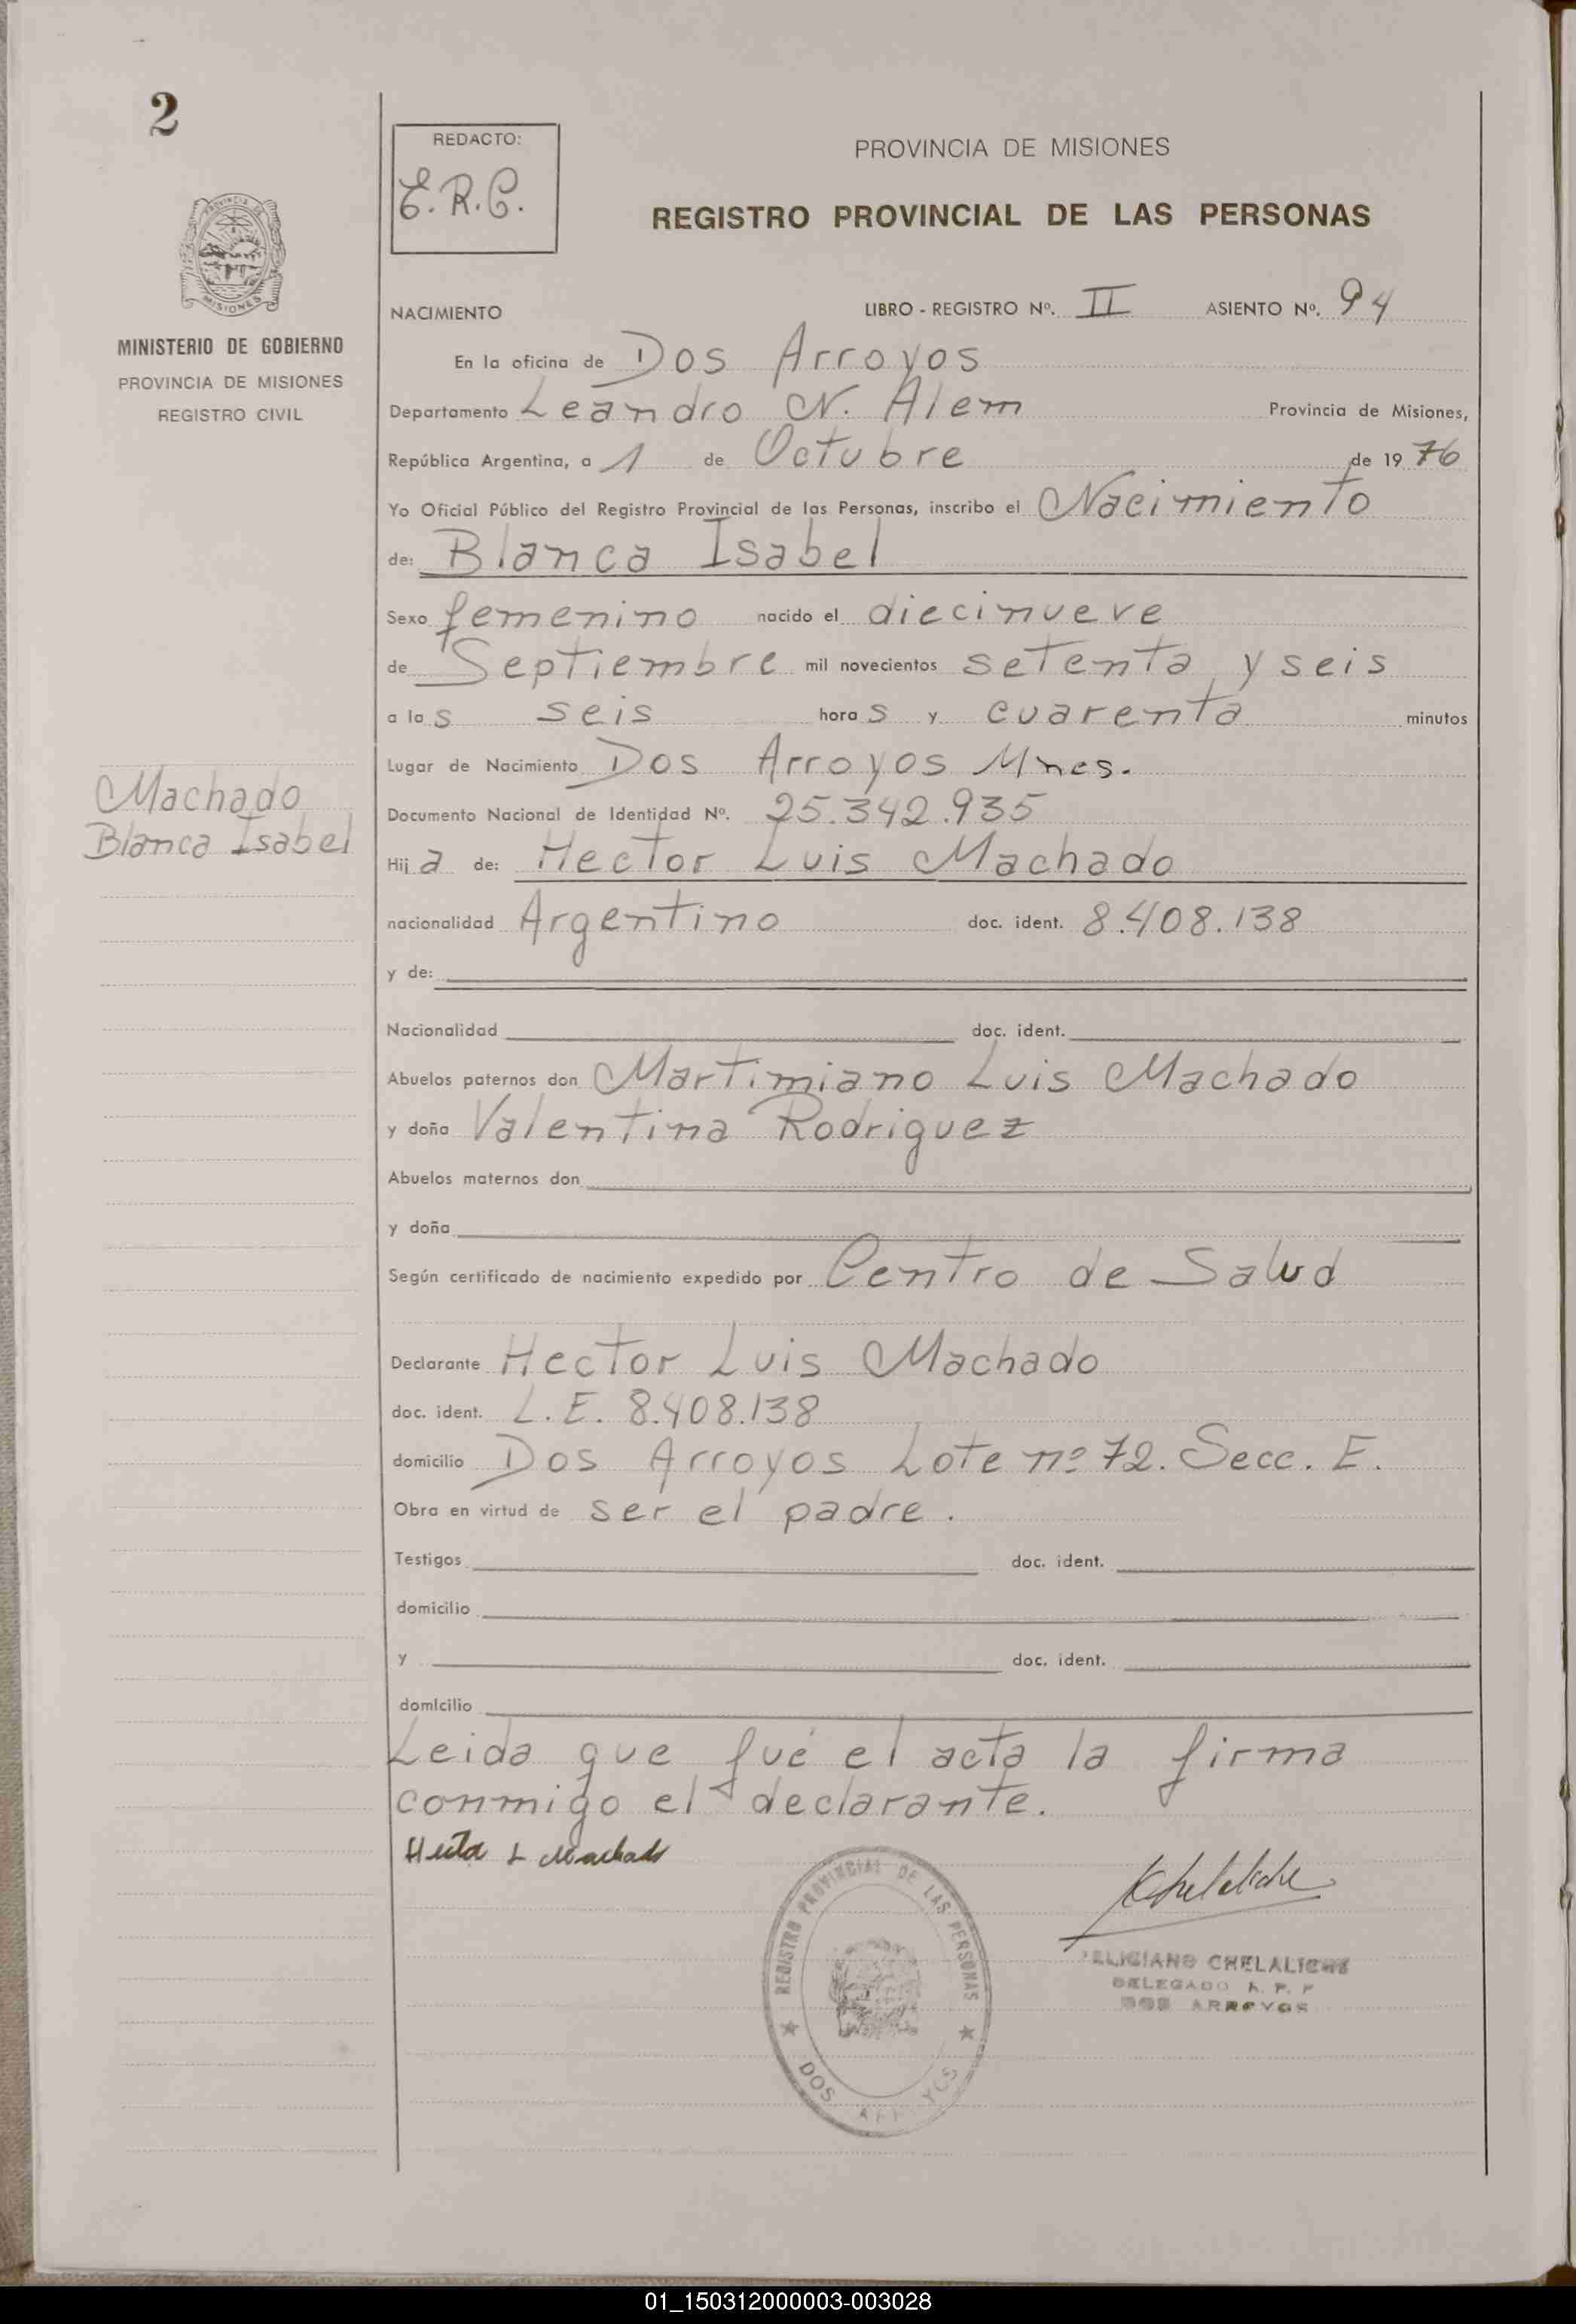 2
REDACTO:
E.R.C.
PROVINCIA DE MISIONES
REGISTRO PROVINCIAL DE LAS PERSONAS
MISIONES
MINISTERIO DE GOBIERNO
PROVINCIA DE MISIONES
REGISTRO CIVIL
NACIMIENTO LIBRO - REGISTRO Nº. II ASIENTO Nº. 94
En la oficina de Dos Arroyos
Departamento Leandro N. Alem Provincia de Misiones,
República Argentina, a 1 de Octubre de 19 76
Yo Oficial Público del Registro Provincial de las Personas, inscribo el Nacimiento
de: Blanca Isabel
Sexo femenino nacido el diecinueve
de Septiembre mil novecientos setenta y seis
a las seis horas y cuarenta minutos
Lugar de Nacimiento Dos Arroyos Mnes.
Machado
Blanca Isabel
Documento Nacional de Identidad Nº. 25.342.935
Hija de: Hector Luis Machado
nacionalidad Argentino doc. ident. 8.408.138
y de:
Nacionalidad doc. ident.
Abuelos paternos don Martimiano Luis Machado
y doña Valentina Rodriguez
Abuelos maternos don
y doña
Según certificado de nacimiento expedido por Centro de Salud
Declarante Hector Luis Machado
doc. ident. L.E. 8.408.138
domicilio Dos Arroyos Lote nº 72. Secc. E.
Obra en virtud de ser el padre.
Testigos doc. ident.
domicilio
y doc. ident.
domicilio
Leida que fué el acta la firma
conmigo el declarante.
Hector L Machado
REGISTRO PROVINCIAL DE LAS PERSONAS
DOS ARROYOS
Chelaliche
FELICIANO CHELALICHE
DELEGADO R. P. P
DOS ARROYOS
01_150312000003-003028